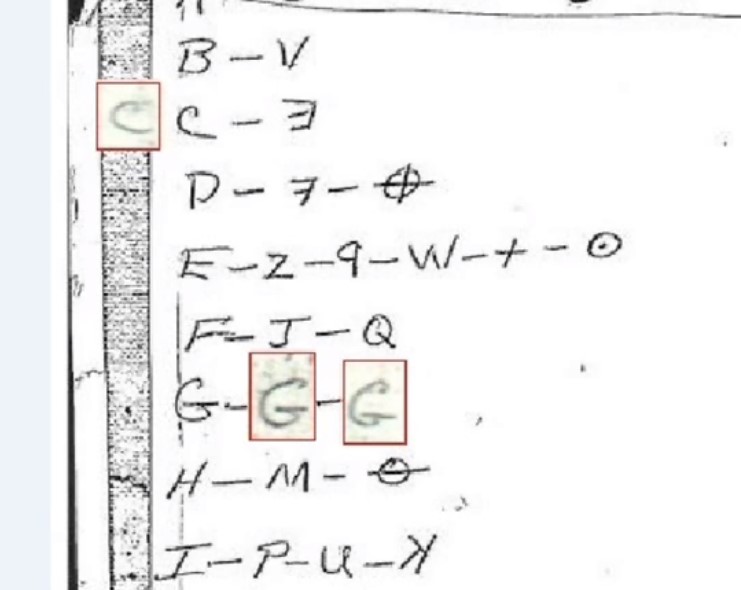 B - V
C C - Ǝ
D - 7 - ⌽
E - Z - 9 - W - + - ⊙
F - J - Q
G - G - G
H - M - ⊖
I - P - U - ꓘ